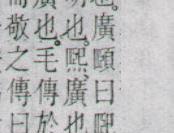 也。廣頤曰熙
也。熙，廣也
廣也。毛傳於
敬之傳曰